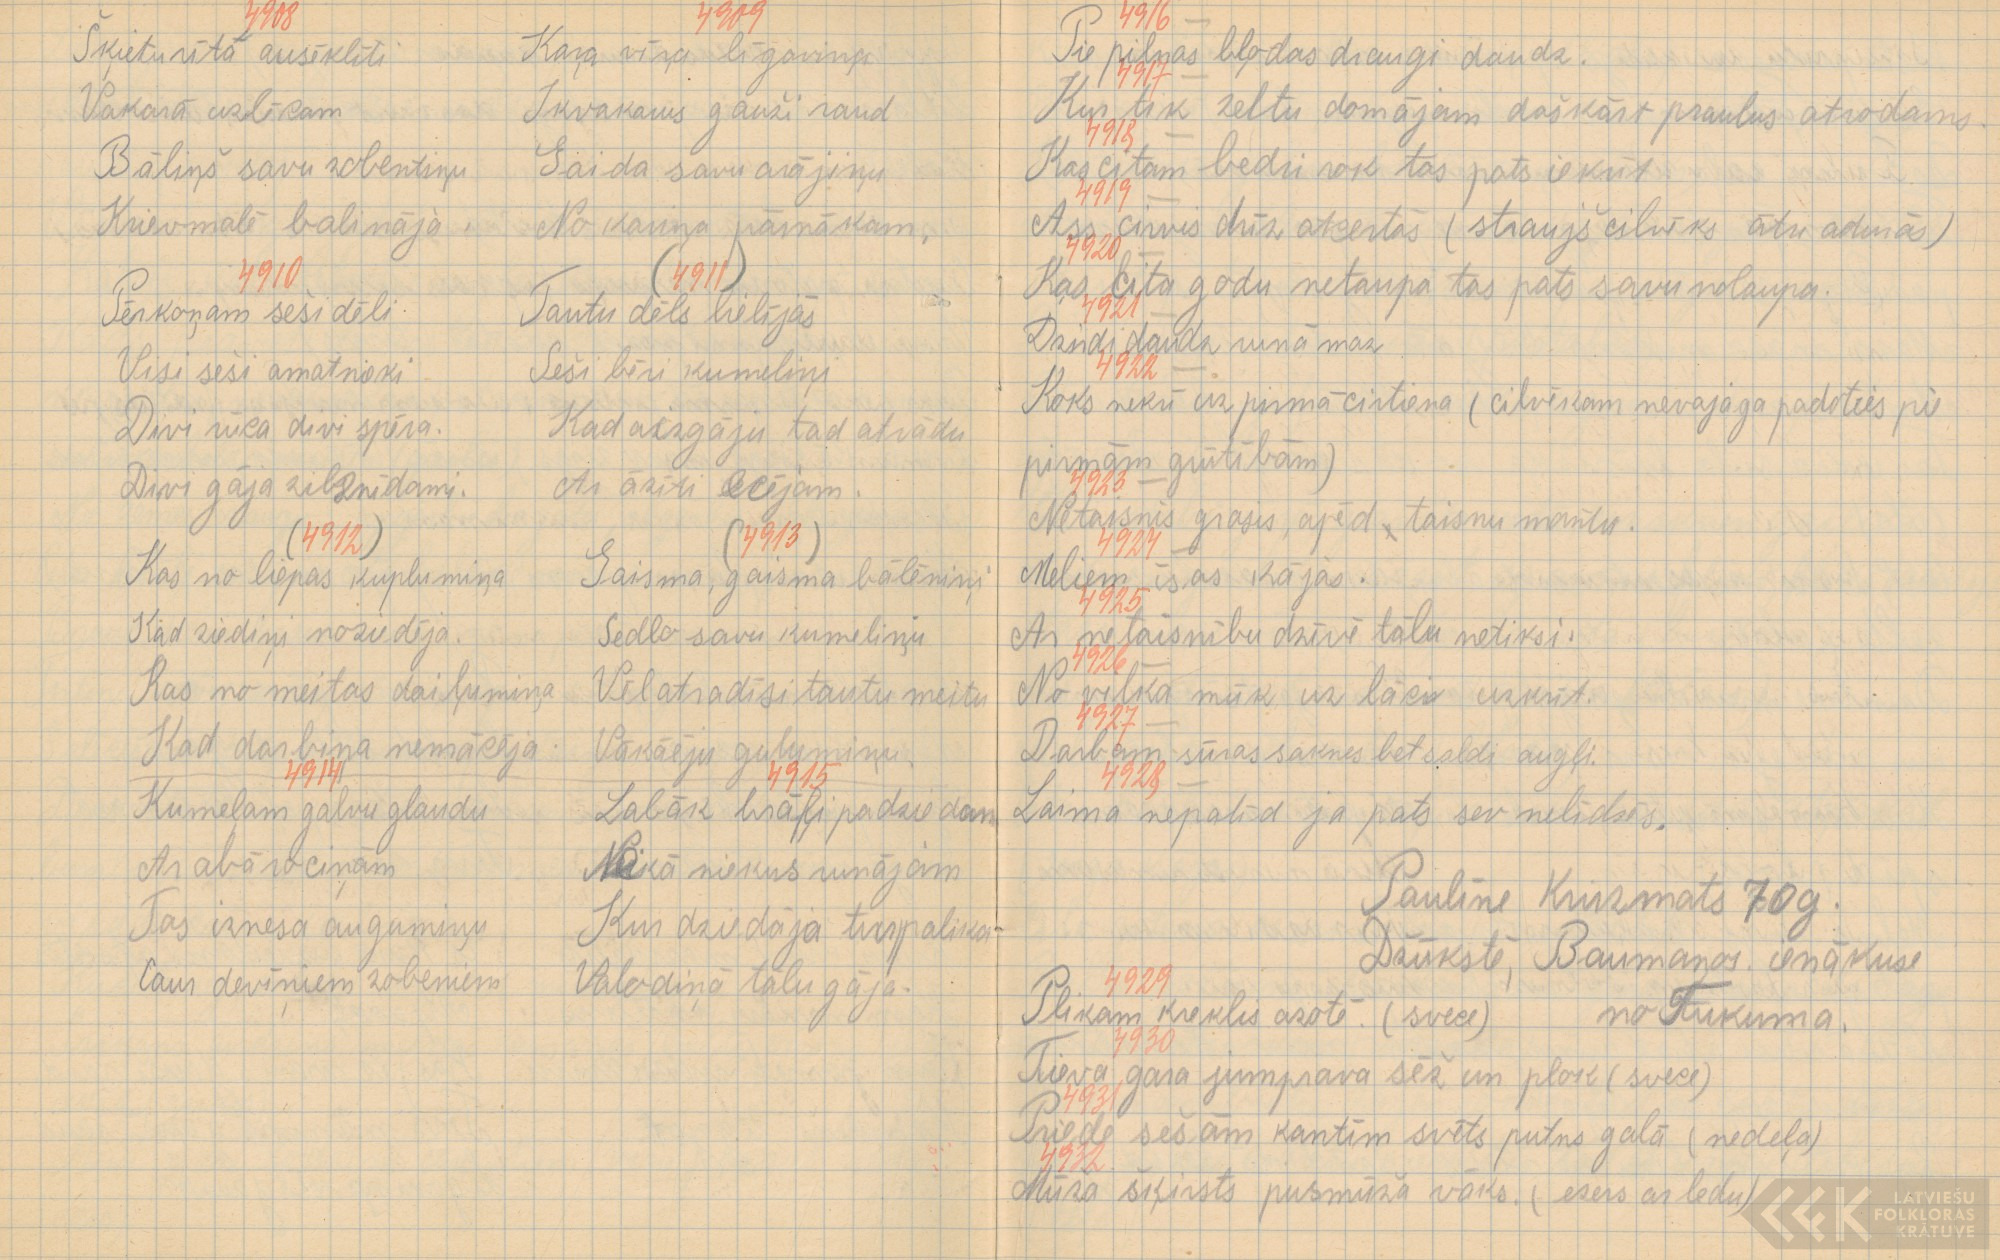 4908
Šķietu rītā ausēklīti
Vakarā uzlēcam
Bāliņš savu zobentiņu
Krievmalē balināja.
4909
Kaŗa vīŗa līgaviņa
Ikvakarus gauži raud
Gaida savu arājiņu
No kariņa pārnākam,
4910
Pērkoņam seši dēli
Visi seši amatnieki
Divi rūca divi spēra.
Divi gāja zibsnīdami.
(4911)
Tautu dēls lielījās
Seši bēri kumeliņi
Kad aizgāju tad atradu
Ar āzīti ecējam.
(4912)
Kas no liepas kuplumiņa
Kad ziediņi noziedēja.
Kas no meitas daiļumiņa
Kad darbiņa nemācēja.
(4913)
Gaisma, gaisma bālēniņi
Sedlo savu kumeliņu
Vēl atradīsi tautu meitu
Vākāēju guļumiņu.
4914
Kumeļam galvu glaudu
Ar abā rociņām
Tas iznesa augumiņu
Caur deviņiem zobeniem
4915
Labāk brāļi padziedam
Nekā niekus runājam
Kur dziedāja turpalika
Valodiņā tālu gāja.
4916
Pie pilnas bļodas draugi daudz.
4917
Kur tik zeltu domājam dažkārt praulus atrodams.
4918
Kas citam bedri rok tas pats iekrīt
4919
Ass cirvis drīz atcertas (straujš cilvēks ātri aduras)
4920
Kas cita godu netaupa tas pats savu nolaupa.
4921
Dzirdi daudz runā maz
4922
Koks nekrīt uz pirmā cirtiena (cilvēkam nevajaga padoties pie
pirmām grūtībām)
4923
Netaisnis grasis, apēd taisnu mantu.
4924
Meliem īsas kājas.
4925
Ar netaisnību dzīvē tālu netiksi.
4926
No vilka mūk uz lāci uzkrīt.
4927
Darbam sūras saknes bet saldi augļi.
4928
Laima nepalīd ja pats sev nelīdzēs.
Paulīne Kruzmats 70g.
Džūkstē, Baumaņos. ienākuse
no Tukuma.
4929
Plikam krekls azotē. (svece)
4930
Tieva gara jumprava sēž un plok (svece)
4931
Priede sešām kantīm svēts putns galā (nedeļa)
4932
Mūža šķirsts pusmūža vāks. (ezers ar ledu)
LATVIEŠU
FOLKLORAS
KRĀTUVE